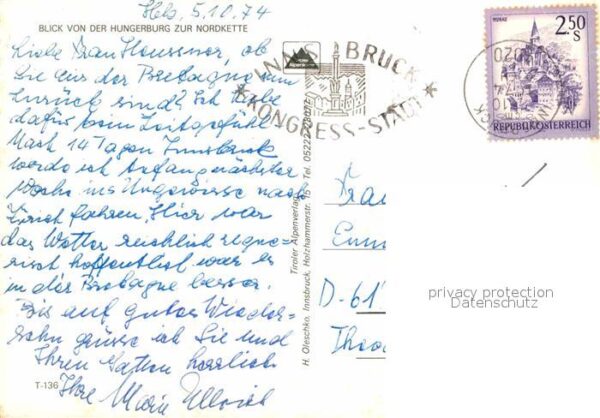 Hbg, 5.10.74
BLICK VON DER HUNGERBURG ZUR NORDKETTE
Liebe Frau, ob
Sie aus der Bretagne nun
zurück sind? Ich habe
dafür kein Zeitgefühl
Nach 14 Tagen Innsbruck
werde ich Anfang nächster
Woche ins Ungewisse nach
Zürich fahren. Hier war
das Wetter reichlich regne-
risch hoffentlich war es
in der Bretagne besser.
Bis auf gutes Wieder-
sehn grüsse ich Sie und
Ihren Gatten herzlich
Ihre Marie Ullrich
T-136
H. Oleschko, Innsbruck, Holzhammerstr. 15 · Tel. 05222/
Tiroler Alpenverlag
INNSBRUCK
KONGRESS-STADT
MURAU
2.50
S
REPUBLIK ÖSTERREICH
6020
Frau
D-61
privacy protection
Datenschutz